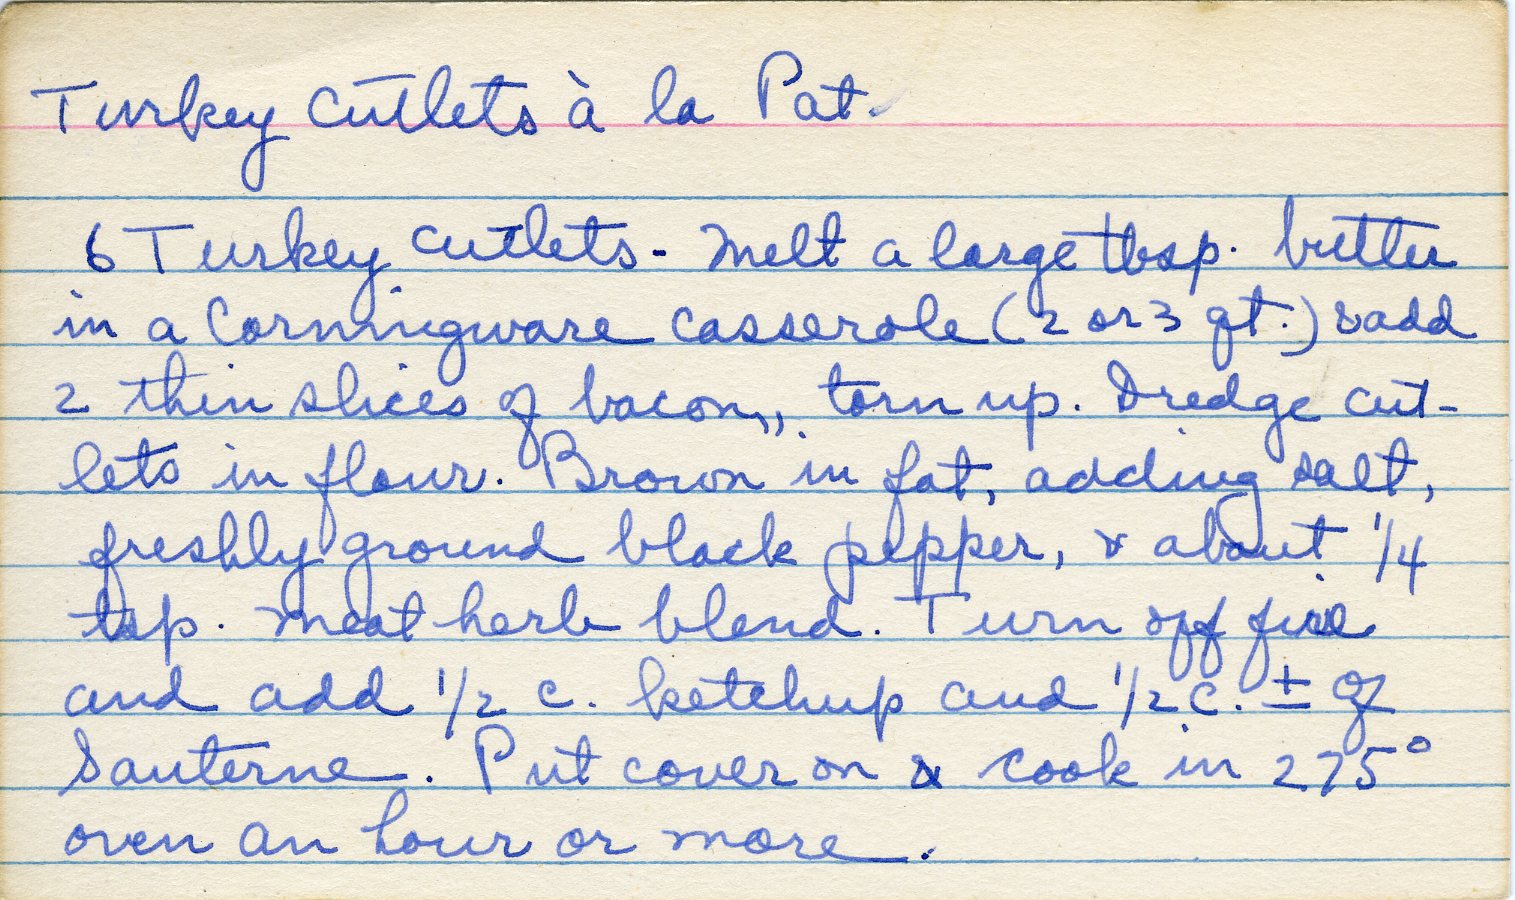 Turkey Cutlets à la Pat.
6 Turkey cutlets - Melt a large tbsp. butter
in a Corningware casserole (2 or 3 qt.) & add
2 thin slices of bacon,, torn up. Dredge cut-
lets in flour. Brown in fat, adding salt,
freshly ground black pepper, & about 1/4
tsp. meat herb blend. Turn off fire
and add 1/2 c. ketchup and 1/2 c. ± of
Sauterne. Put cover on & cook in 275°
oven an hour or more.